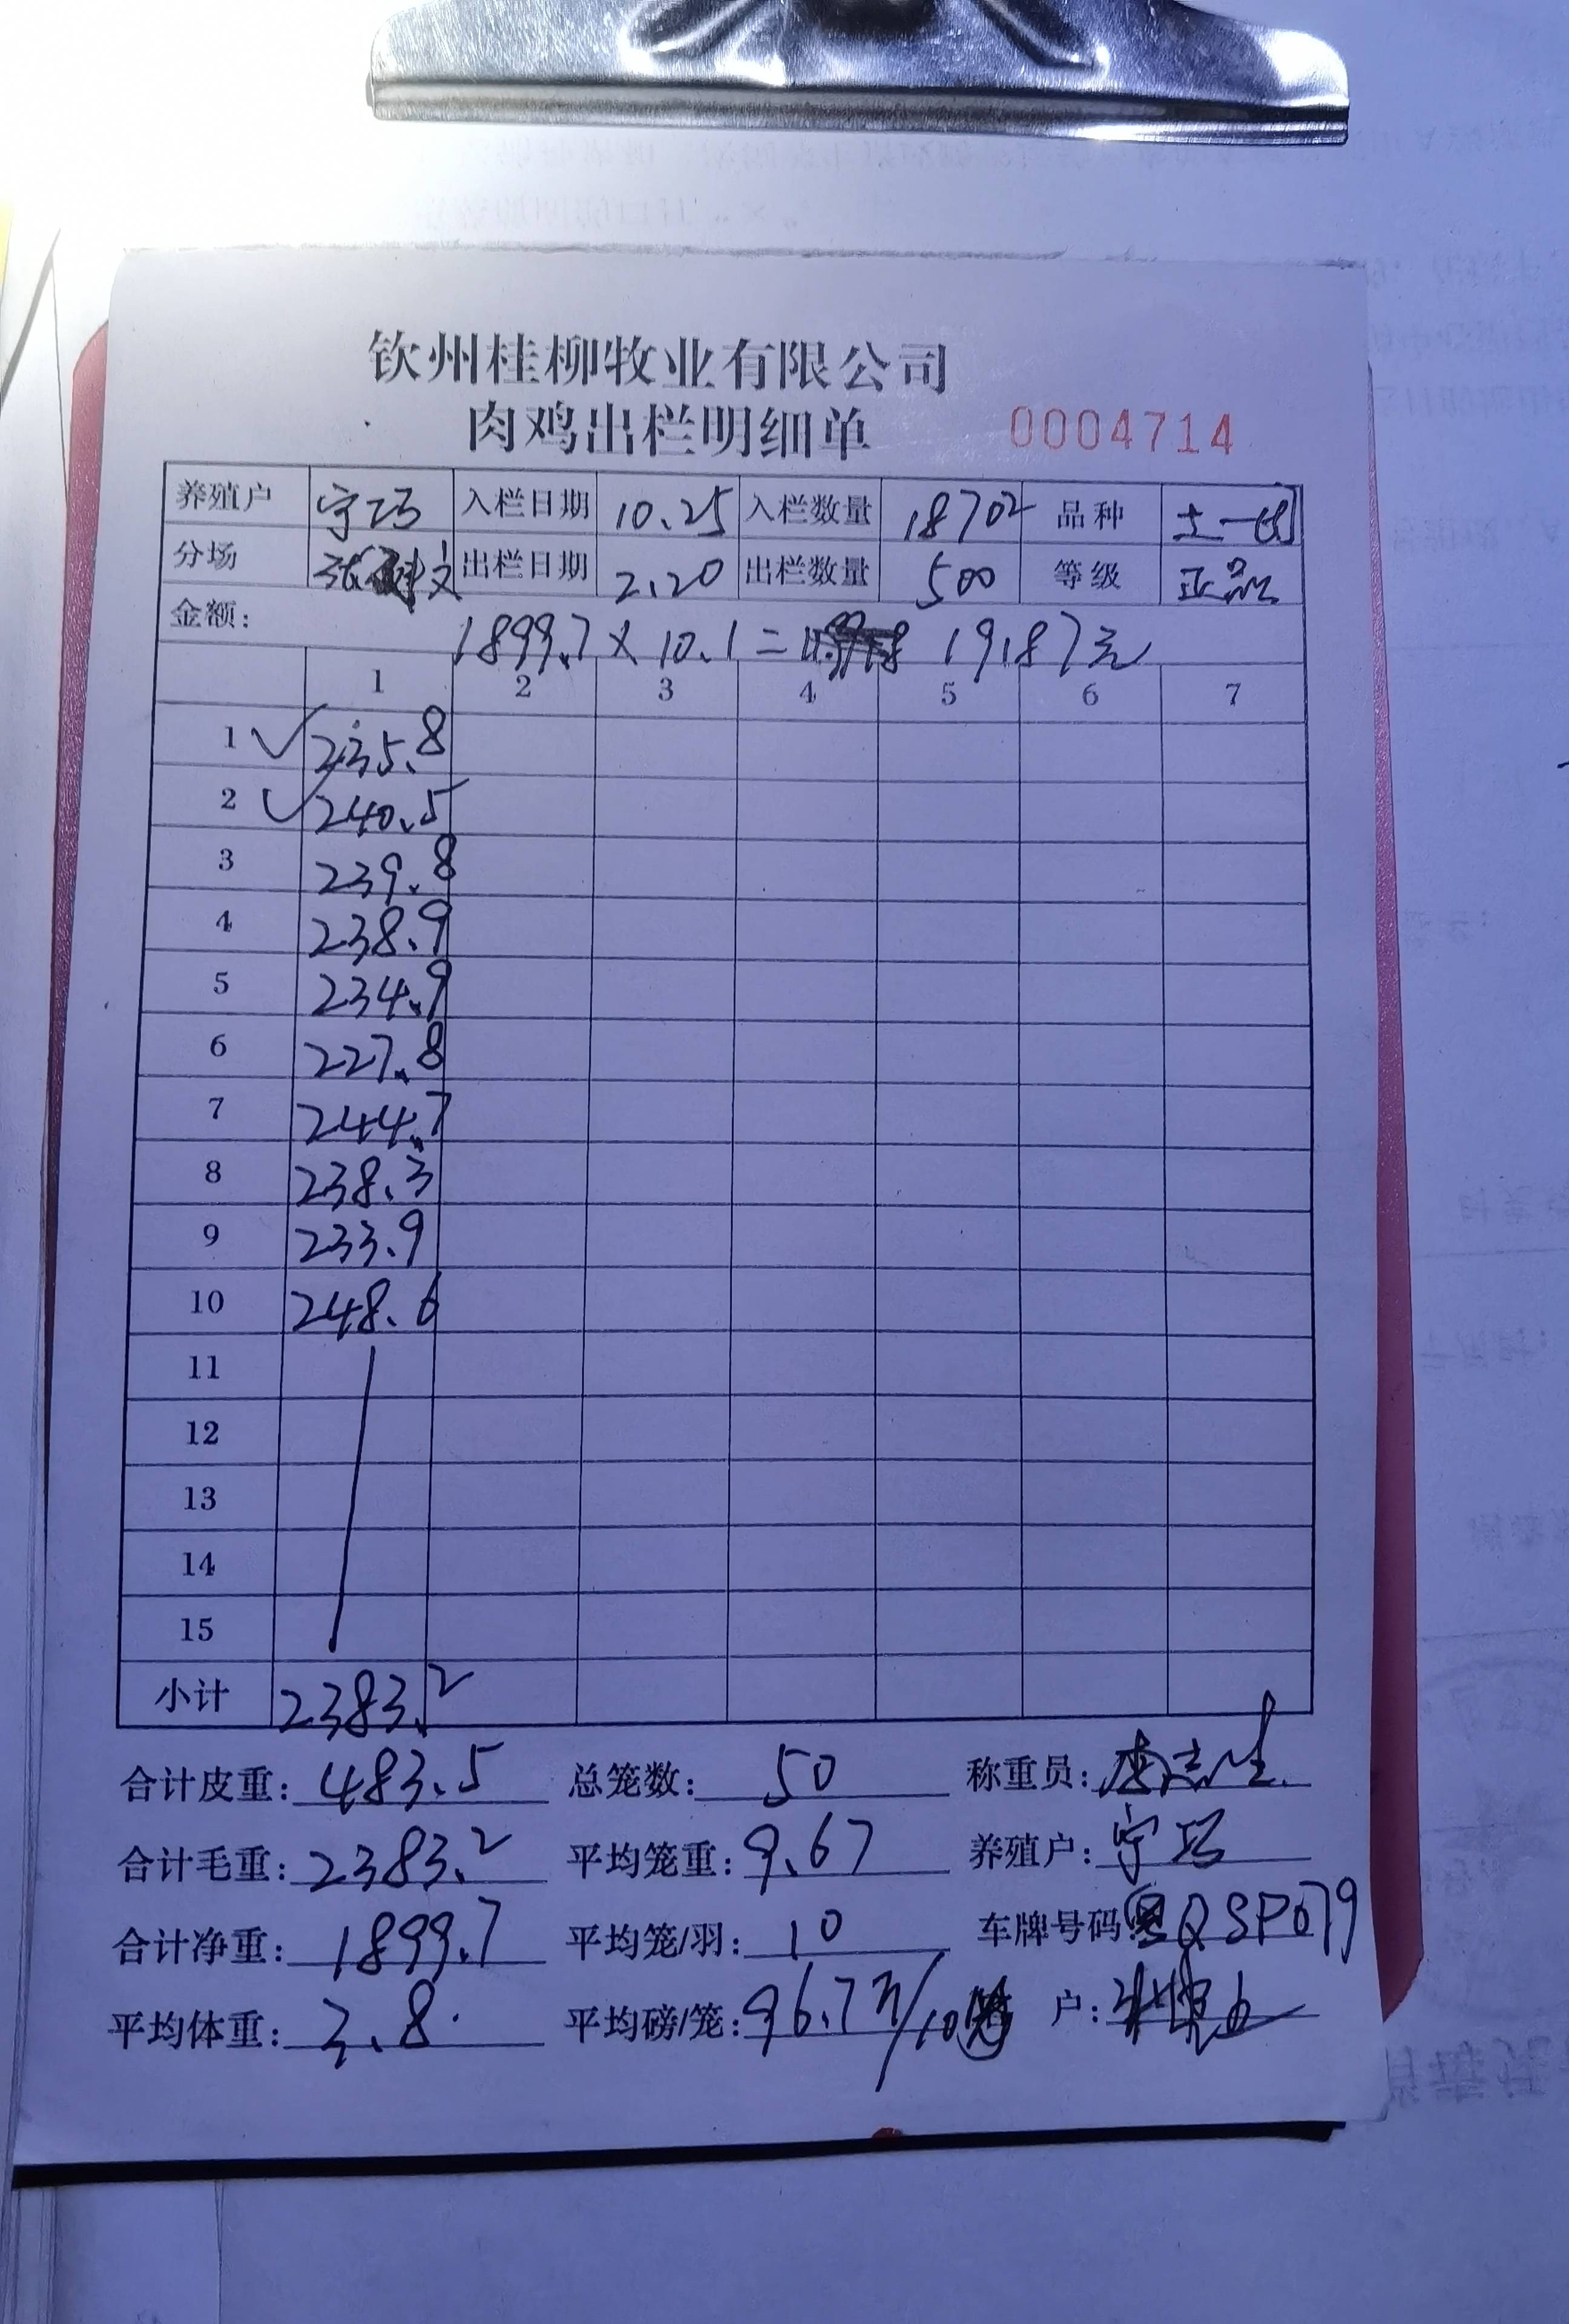 钦州桂柳牧业有限公司
肉鸡出栏明细单 0004714
养殖户 宁巧 入栏日期 10.25 入栏数量 18702 品种 土一
分场 张 文 出栏日期 2.20 出栏数量 500 等级 正品
金额: 1899.7 × 10.1 = 19187元
1 2 3 4 5 6 7
1 235.8
2 240.5
3 239.8
4 238.9
5 234.9
6 227.8
7 244.7
8 238.3
9 233.9
10 248.6
11
12
13
14
15
小计 2383.2
合计皮重: 483.5 总笼数: 50 称重员:
合计毛重: 2383.2 平均笼重: 9.67 养殖户: 宁巧
合计净重: 1899.7 平均笼/羽: 10 车牌号码 粤Q SP079
平均体重: 3.8 平均磅/笼: 96.7 /10 户: